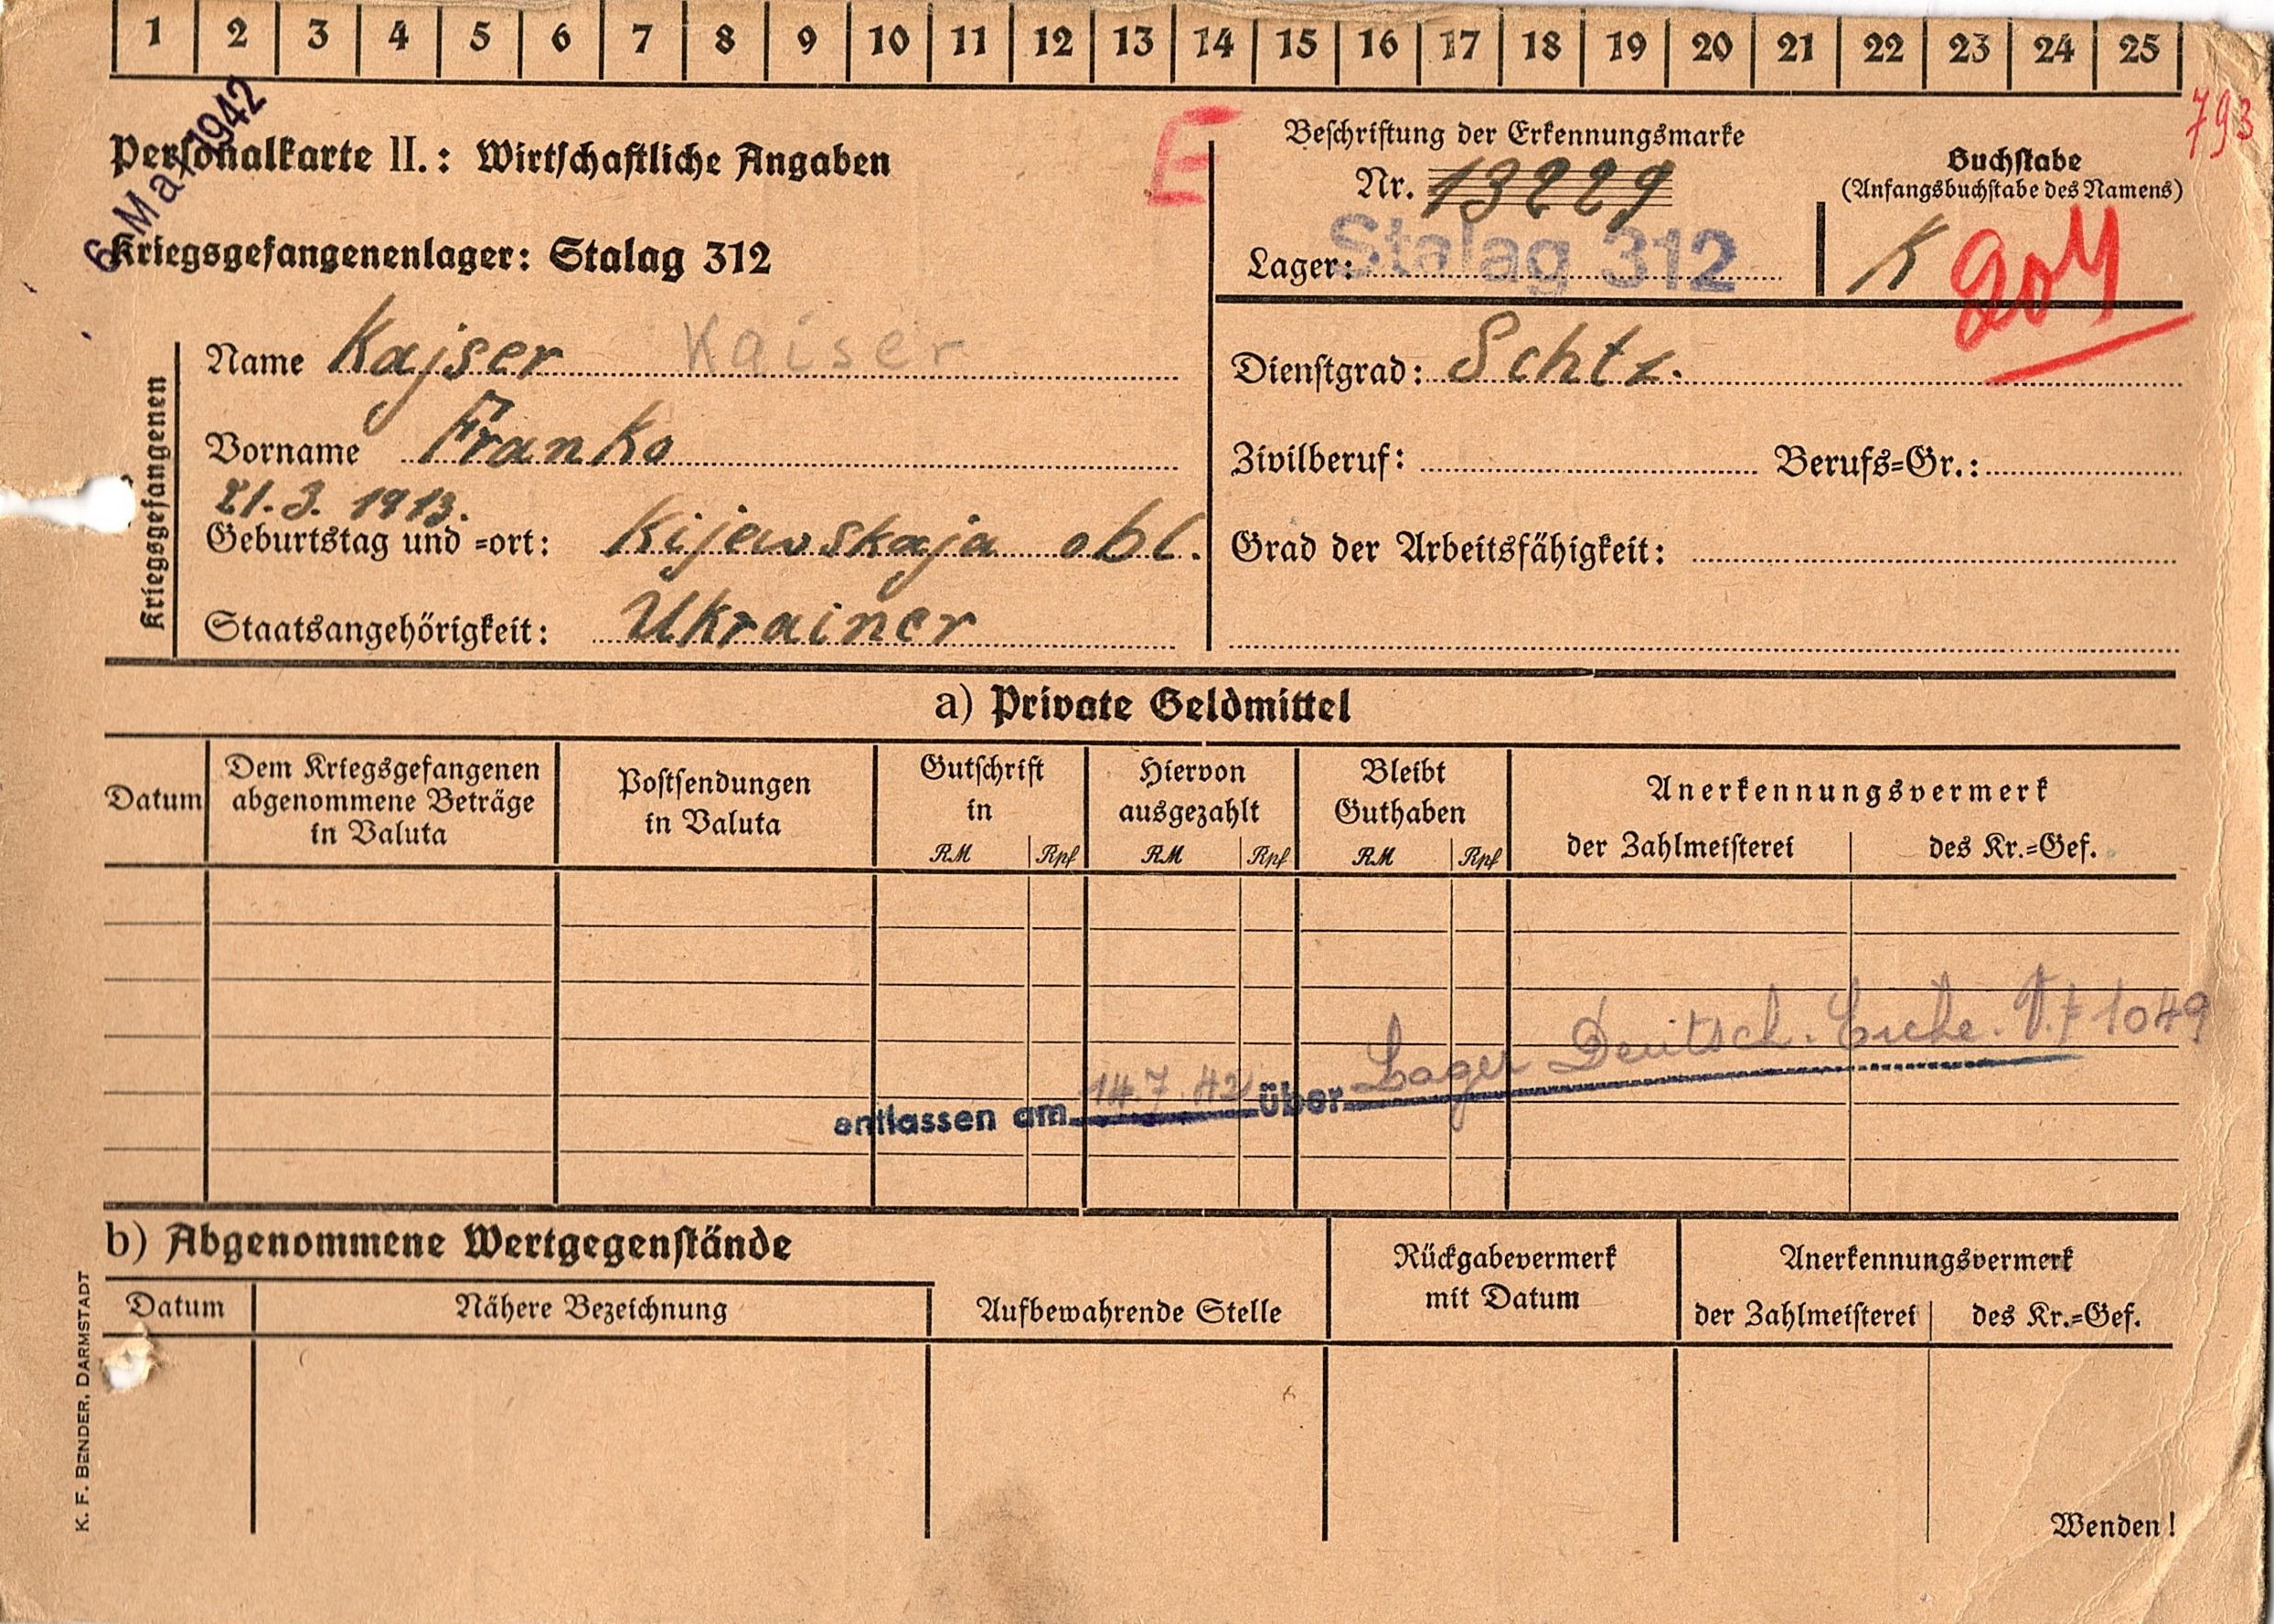 1 2 3 4 5 6 7 8 9 10 11 12 13 14 15 16 17 18 19 20 21 22 23 24 25
793
6. Mai 1942
E
Personalkarte II.: Wirtschaftliche Angaben
Kriegsgefangenenlager: Stalag 312
Beschriftung der Erkennungsmarke
Nr. 13229
Lager: Stalag 312
Buchstabe
(Anfangsbuchstabe des Namens)
K
Kriegsgefangenen
Name Kajser Kaiser
Vorname Franko
21.3.1913.
Geburtstag und =ort: Kijewskaja obl.
Staatsangehörigkeit: Ukrainer
Dienstgrad: Schtz.
Zivilberuf: Berufs=Gr.:
Grad der Arbeitsfähigkeit:
a) Private Geldmittel
Datum
Dem Kriegsgefangenen
abgenommene Beträge
in Valuta
Postsendungen
in Valuta
Gutschrift
in
RM Rpf
Hiervon
ausgezahlt
RM Rpf
Bleibt
Guthaben
RM Rpf
Anerkennungsvermerk
der Zahlmeisterei des Kr.=Gef.
entlassen am 14.7.42 über Lager Deutsch. 1049
b) Abgenommene Wertgegenstände
Datum Nähere Bezeichnung
Aufbewahrende Stelle
Rückgabevermerk
mit Datum
Anerkennungsvermerk
der Zahlmeisterei des Kr.=Gef.
Wenden!
K. F. BENDER, DARMSTADT